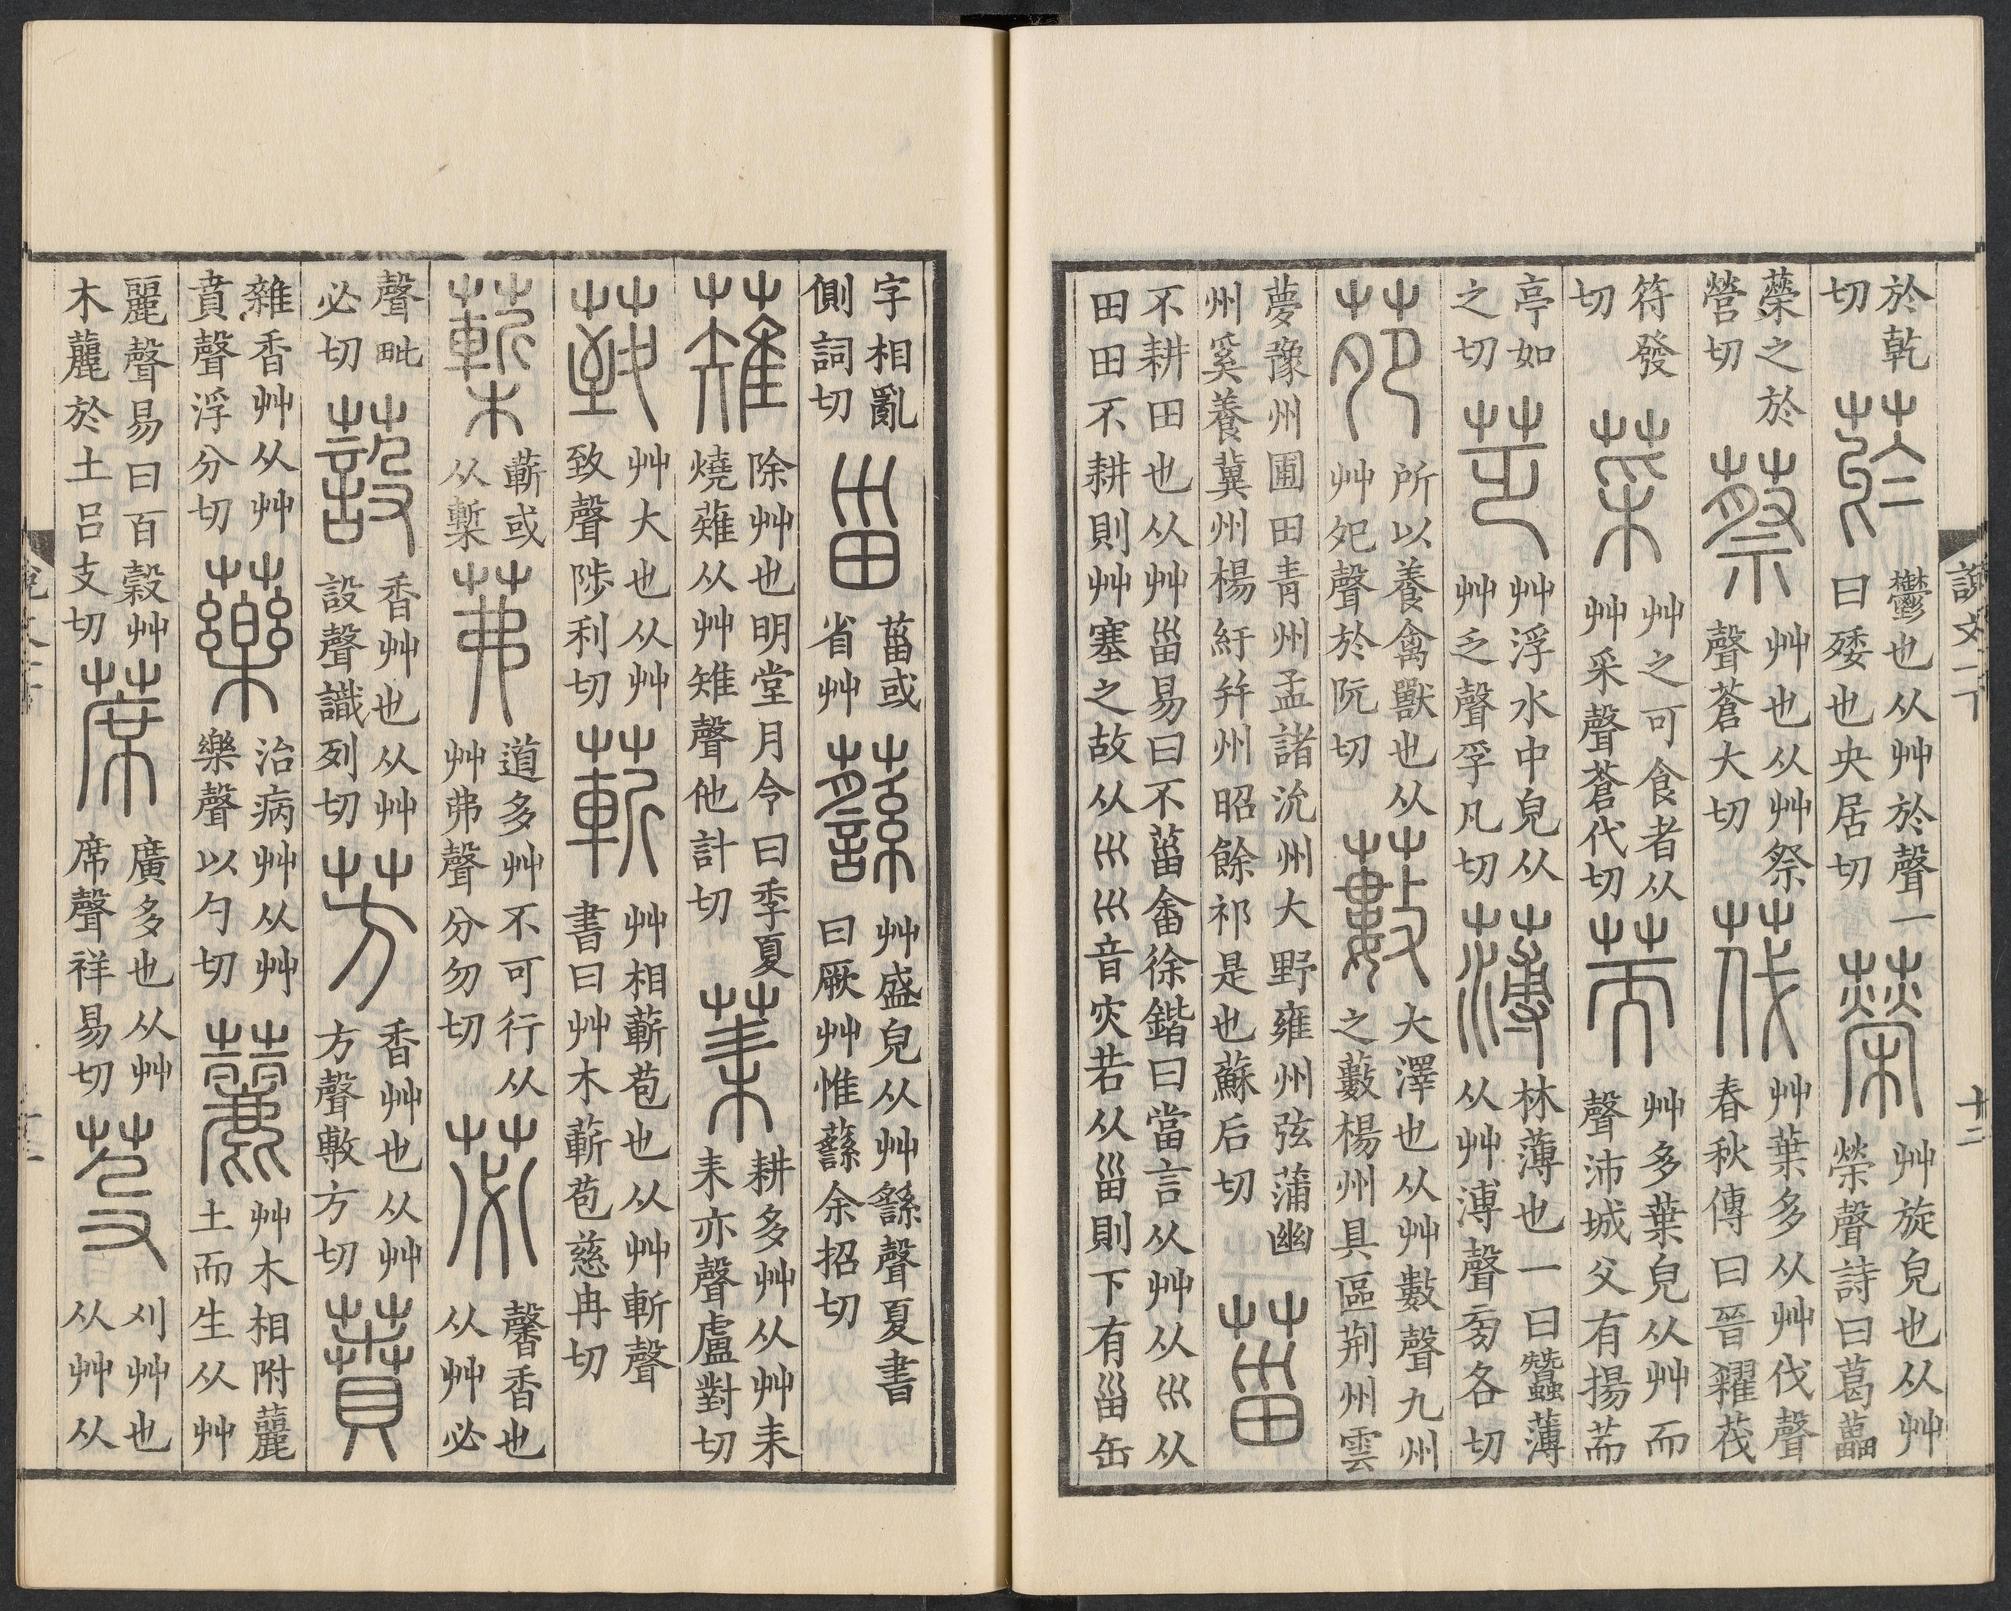 於乾切 菸 鬱也从艸於聲一曰矮也央居切 䕝 艸旋皃也从艸榮聲詩曰葛藟
蘂之於營切 蔡 艸也从艸祭聲蒼大切 茷 艸葉多从艸伐聲春秋傳曰晉糴茷
符發切 菜 艸之可食者从艸采聲蒼代切 芾 艸多葉皃从艸而聲沛城父有揚芾
亭如之切 芝 艸浮水中皃从艸乏聲孚凡切 薄 林薄也一曰蠶薄从艸溥聲旁各切
苑 所以養禽獸也从艸夗聲於阮切 藪 大澤也从艸數聲九州之藪楊州具區荆州雲
夢豫州圃田青州孟諸沇州大野雍州弦蒲幽州奚養冀州楊紆并州昭餘祁是也蘇后切 菑
不耕田也从艸甾易曰不菑畬徐鍇曰當言从艸从巛从田田不耕則艸塞之故从巛巛音灾若从甾則下有甾缶
說文一下
十二
字相亂側詞切 甾 菑或省艸 蘨 艸盛皃从艸繇聲夏書曰厥艸惟蘨余招切
薙 除艸也明堂月令曰季夏燒薙从艸雉聲他計切 茉 耕多艸从艸耒耒亦聲盧對切
䓌 艸大也从艸致聲陟利切 蔪 艸相蔪苞也从艸斬聲書曰艸木蔪苞慈冉切
蔪 蔪或从槧 茀 道多艸不可行从艸弗聲分勿切 苾 馨香也从艸必
聲毗必切 蔎 香艸也从艸設聲識列切 芳 香艸也从艸方聲敷方切 蕡
雜香艸从艸賁聲浮分切 藥 治病艸从艸樂聲以勺切 䕻 艸木相附䕻土而生从艸
麗聲易曰百穀艸木䕻於土吕支切 蓆 廣多也从艸席聲祥易切 芟 刈艸也从艸从